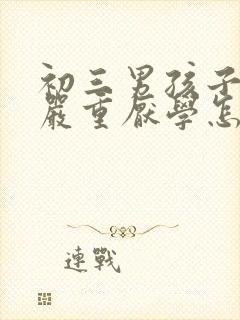 初三男孩子
嚴重厭學怎
連戰